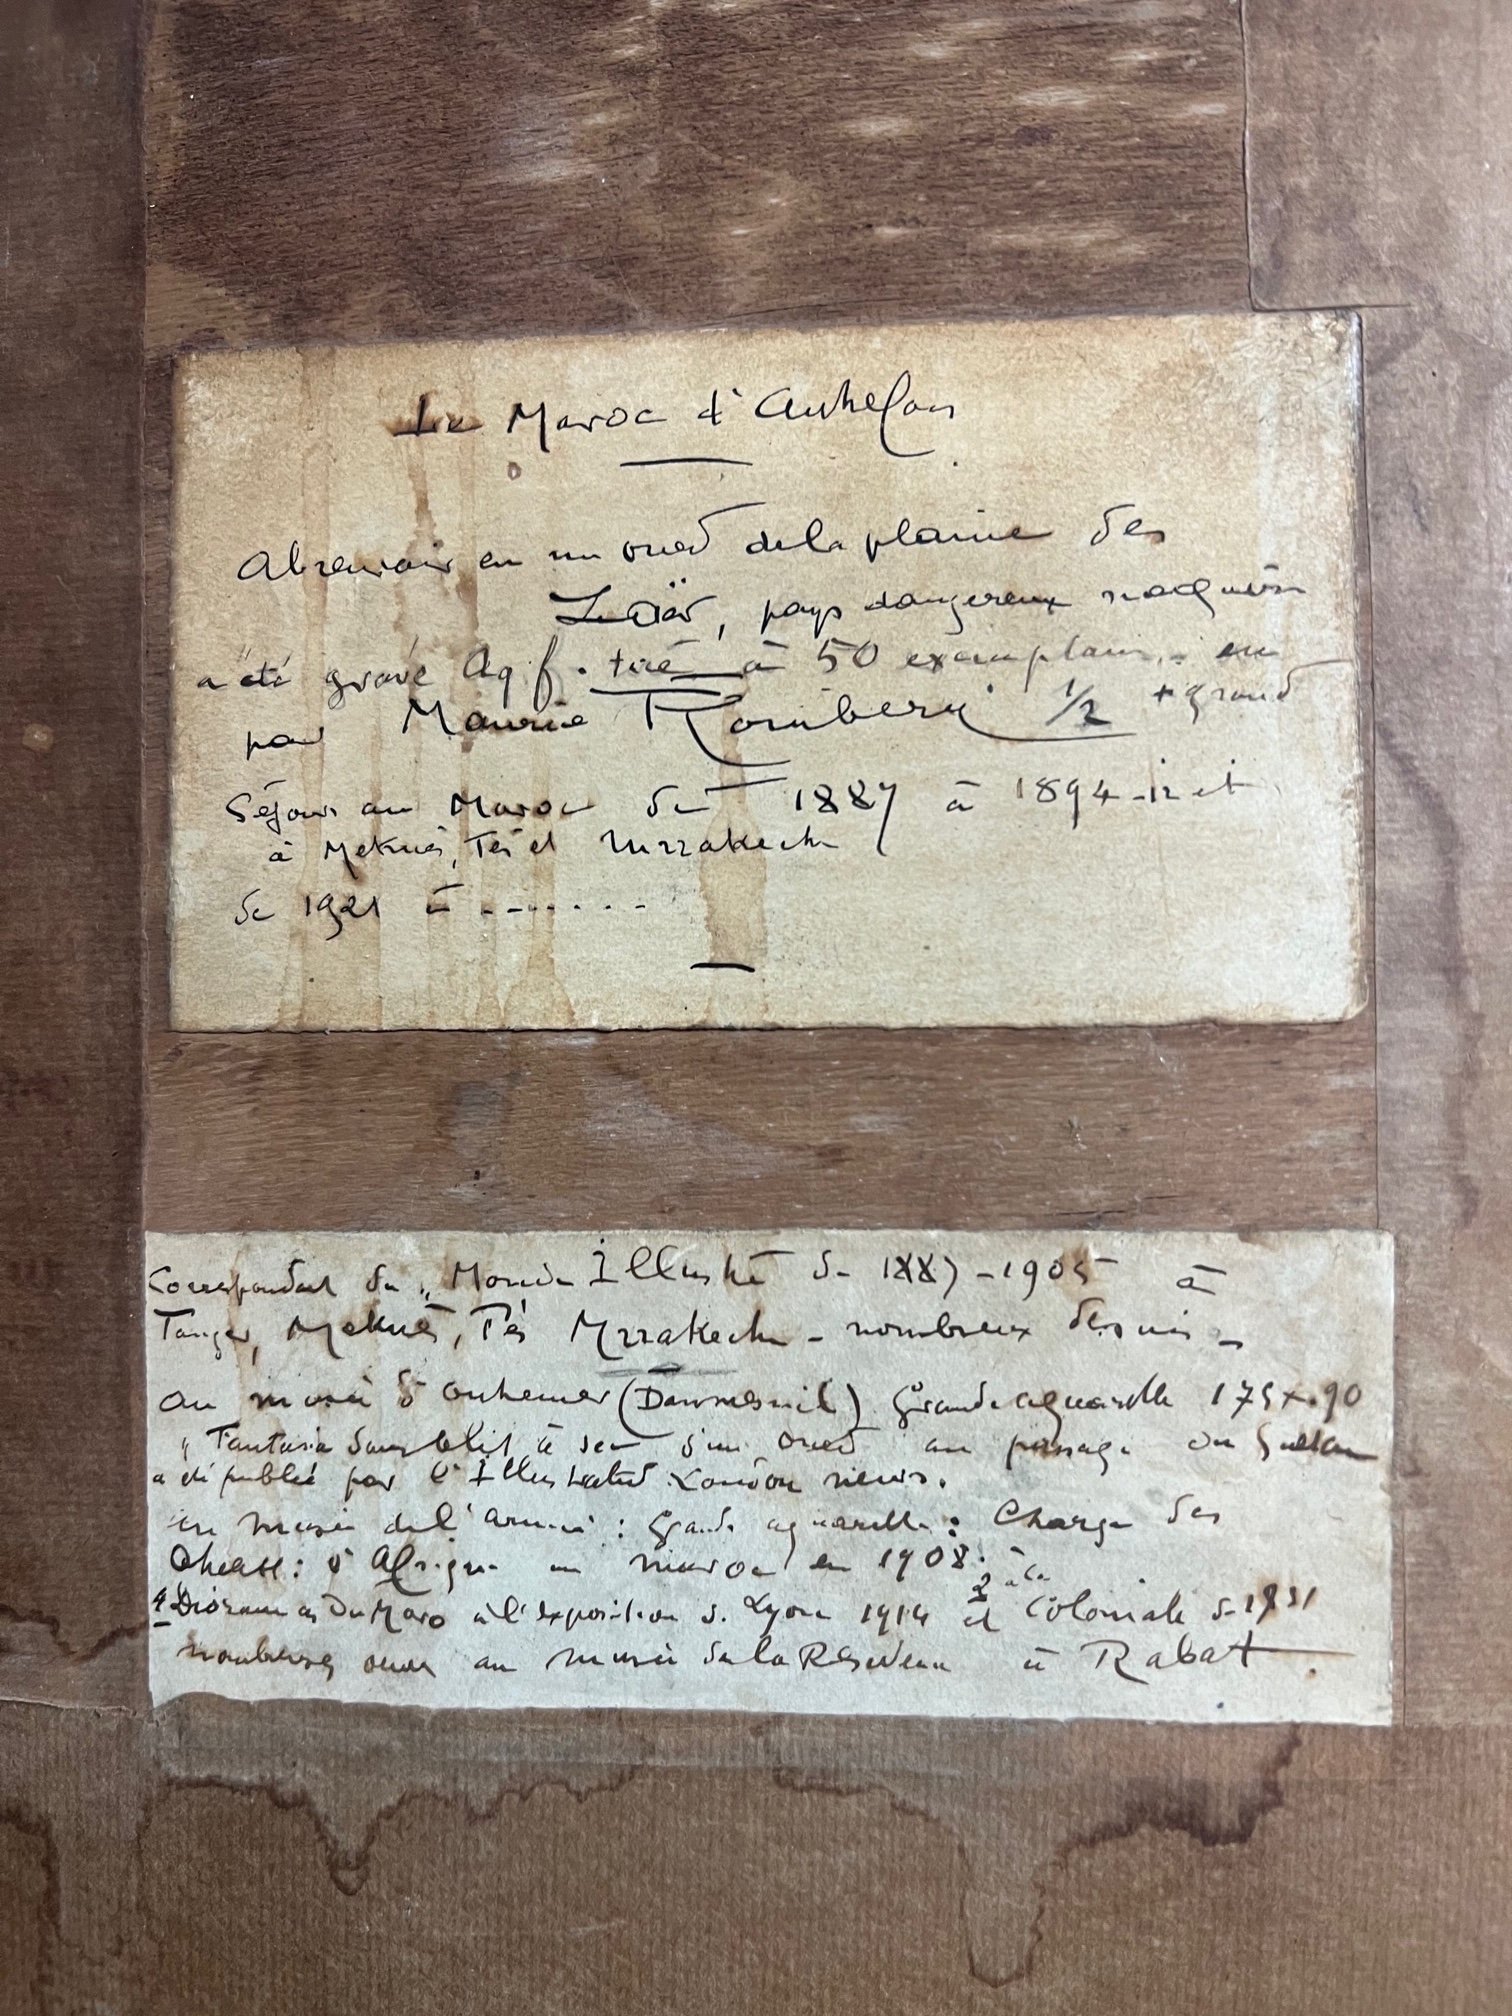 Le Maroc d'Autrefois
Abreuvoir en un oued de la plaine des
Zaër, pays dangereux naguère
a été gravé Aq f. tiré à 50 exemplaires en
par Maurice Romberg 1/2 + grand
Séjour au Maroc de 1887 à 1894 - ir et
à Meknès, Fès et Mrrakech
de 1921 à .......
Correspondant du "Monde Illustré de 1887 - 1905 à
Tanger, Meknès, Fès Mrrakech - nombreux dessins -
au musée d'outremer (Daumesnil) Grande aquarelle 175 x 90
"Fantasia dans le lit à sec d'un oued au passage du Sultan
a été publié par l'Illustrated London news.
au musée de l'armée : Grande aquarelle : Charge des
Chass: d'Afrique au maroc en 1908.
4 Dioramas du Maroc à l'exposition de Lyon 1914 et 2 à la Coloniale de 1931
nombreuses au musée de la Résidence à Rabat.